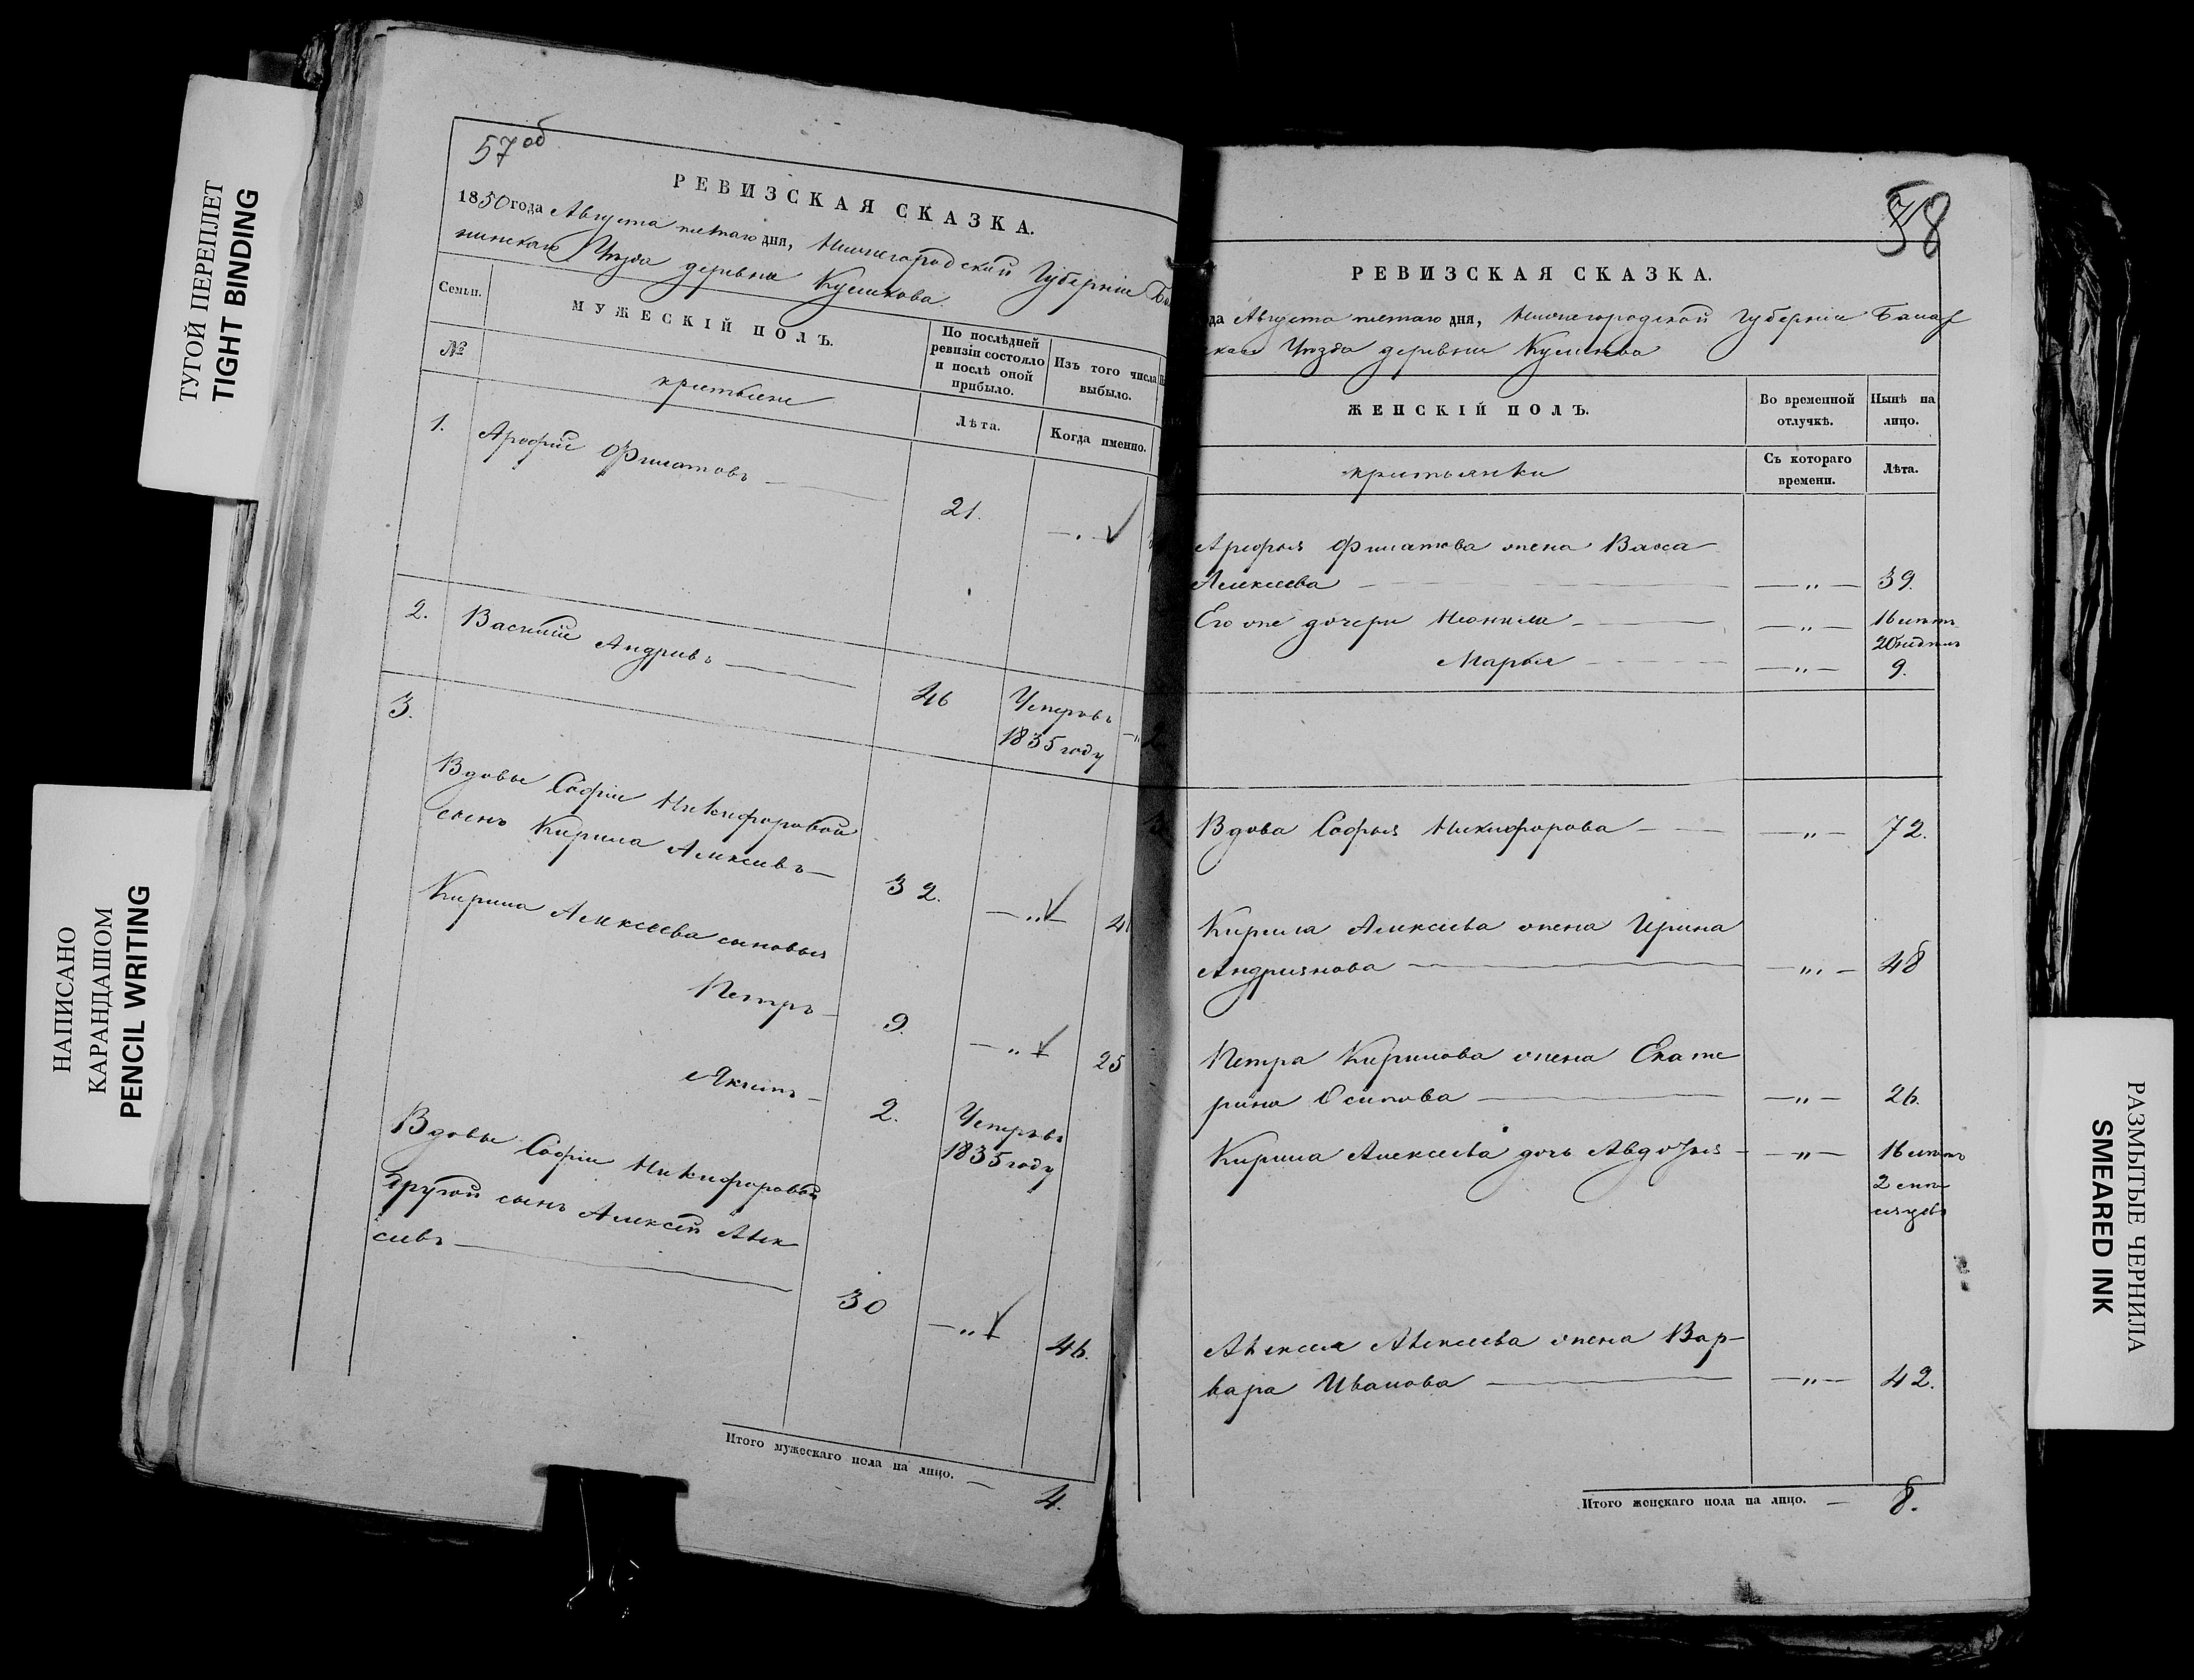 ТУГОЙ ПЕРЕПЛЕТ
TIGHT BINDING
НАПИСАНО
КАРАНДАШОМ
PENCIL WRITING
57 об
РЕВИЗСКАЯ СКАЗКА.
1850 года Августа пятаго дня, Нижегородской Губернiи Ба
нинскаго Уѣзда деревни
Семьи.
МУЖЕСКІЙ ПОЛЪ.
По послѣдней
ревизіи состояло
и послѣ оной
прибыло.
Изъ того числа
выбыло.
№
крестьяне
Лѣта.
Когда именно.
1.
Арефий Филатовъ
21.
2.
Василий Андреевъ
46
Умеръ въ
1835 году
3.
Вдовы Софiи Никифоровой
сынъ Кирила Алексеевъ
32.
Кирила Алексеева сыновья
Петръ
9.
25
Якимъ
2.
Умеръ въ
1835 году
Вдовы Софiи Никифоровой
другой сынъ Алексей Алек
сеевъ
30
46.
Итого мужескаго пола на лицо.
4.
58
РЕВИЗСКАЯ СКАЗКА.
да Августа пятаго дня, Нижегородской Губернiи
скаго Уѣзда деревни
ЖЕНСКІЙ ПОЛЪ.
Во временной
отлучкѣ.
Нынѣ на
лицо.
крестьянки
Съ котораго
времени.
Лѣта.
Арефья Филатова жена Васса
Алексеева
39.
Его же дочери Неонила
16 летъ
20 недель
Марья
9.
Вдова Софья Никифорова
72.
Кирила Алексеева жена Ирина
Андриянова
48
Петра Кирилова жена Екате
рина Осипова
26.
Кирила Алексеева дочь Авдотья
16 летъ
2 ме
сяцевъ
Алексея Алексеева жена Вар-
вара Иванова
42.
Итого женскаго пола на лицо.
8.
РАЗМЫТЫЕ ЧЕРНИЛА
SMEARED INK